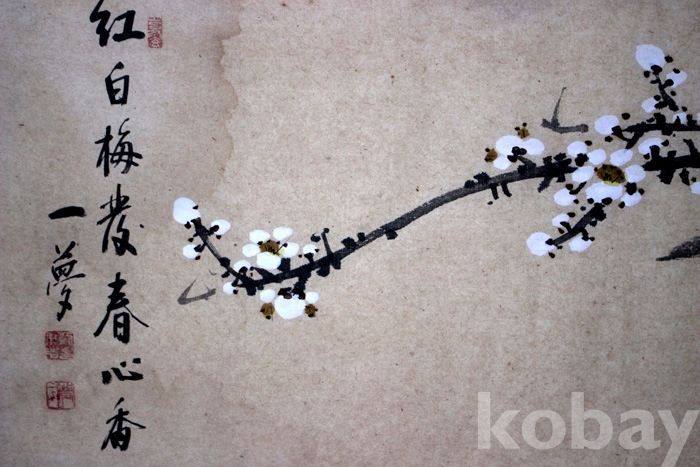 紅白梅發春心香
一夢
kobay